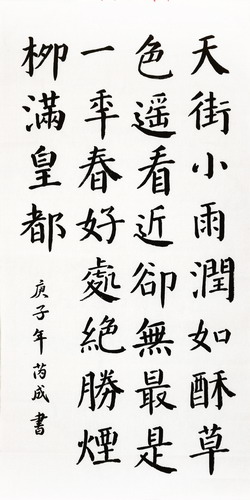 天街小雨潤如酥草
色遥看近卻無最是
一年春好處絕勝煙
栁滿皇都
庚子年芮成書